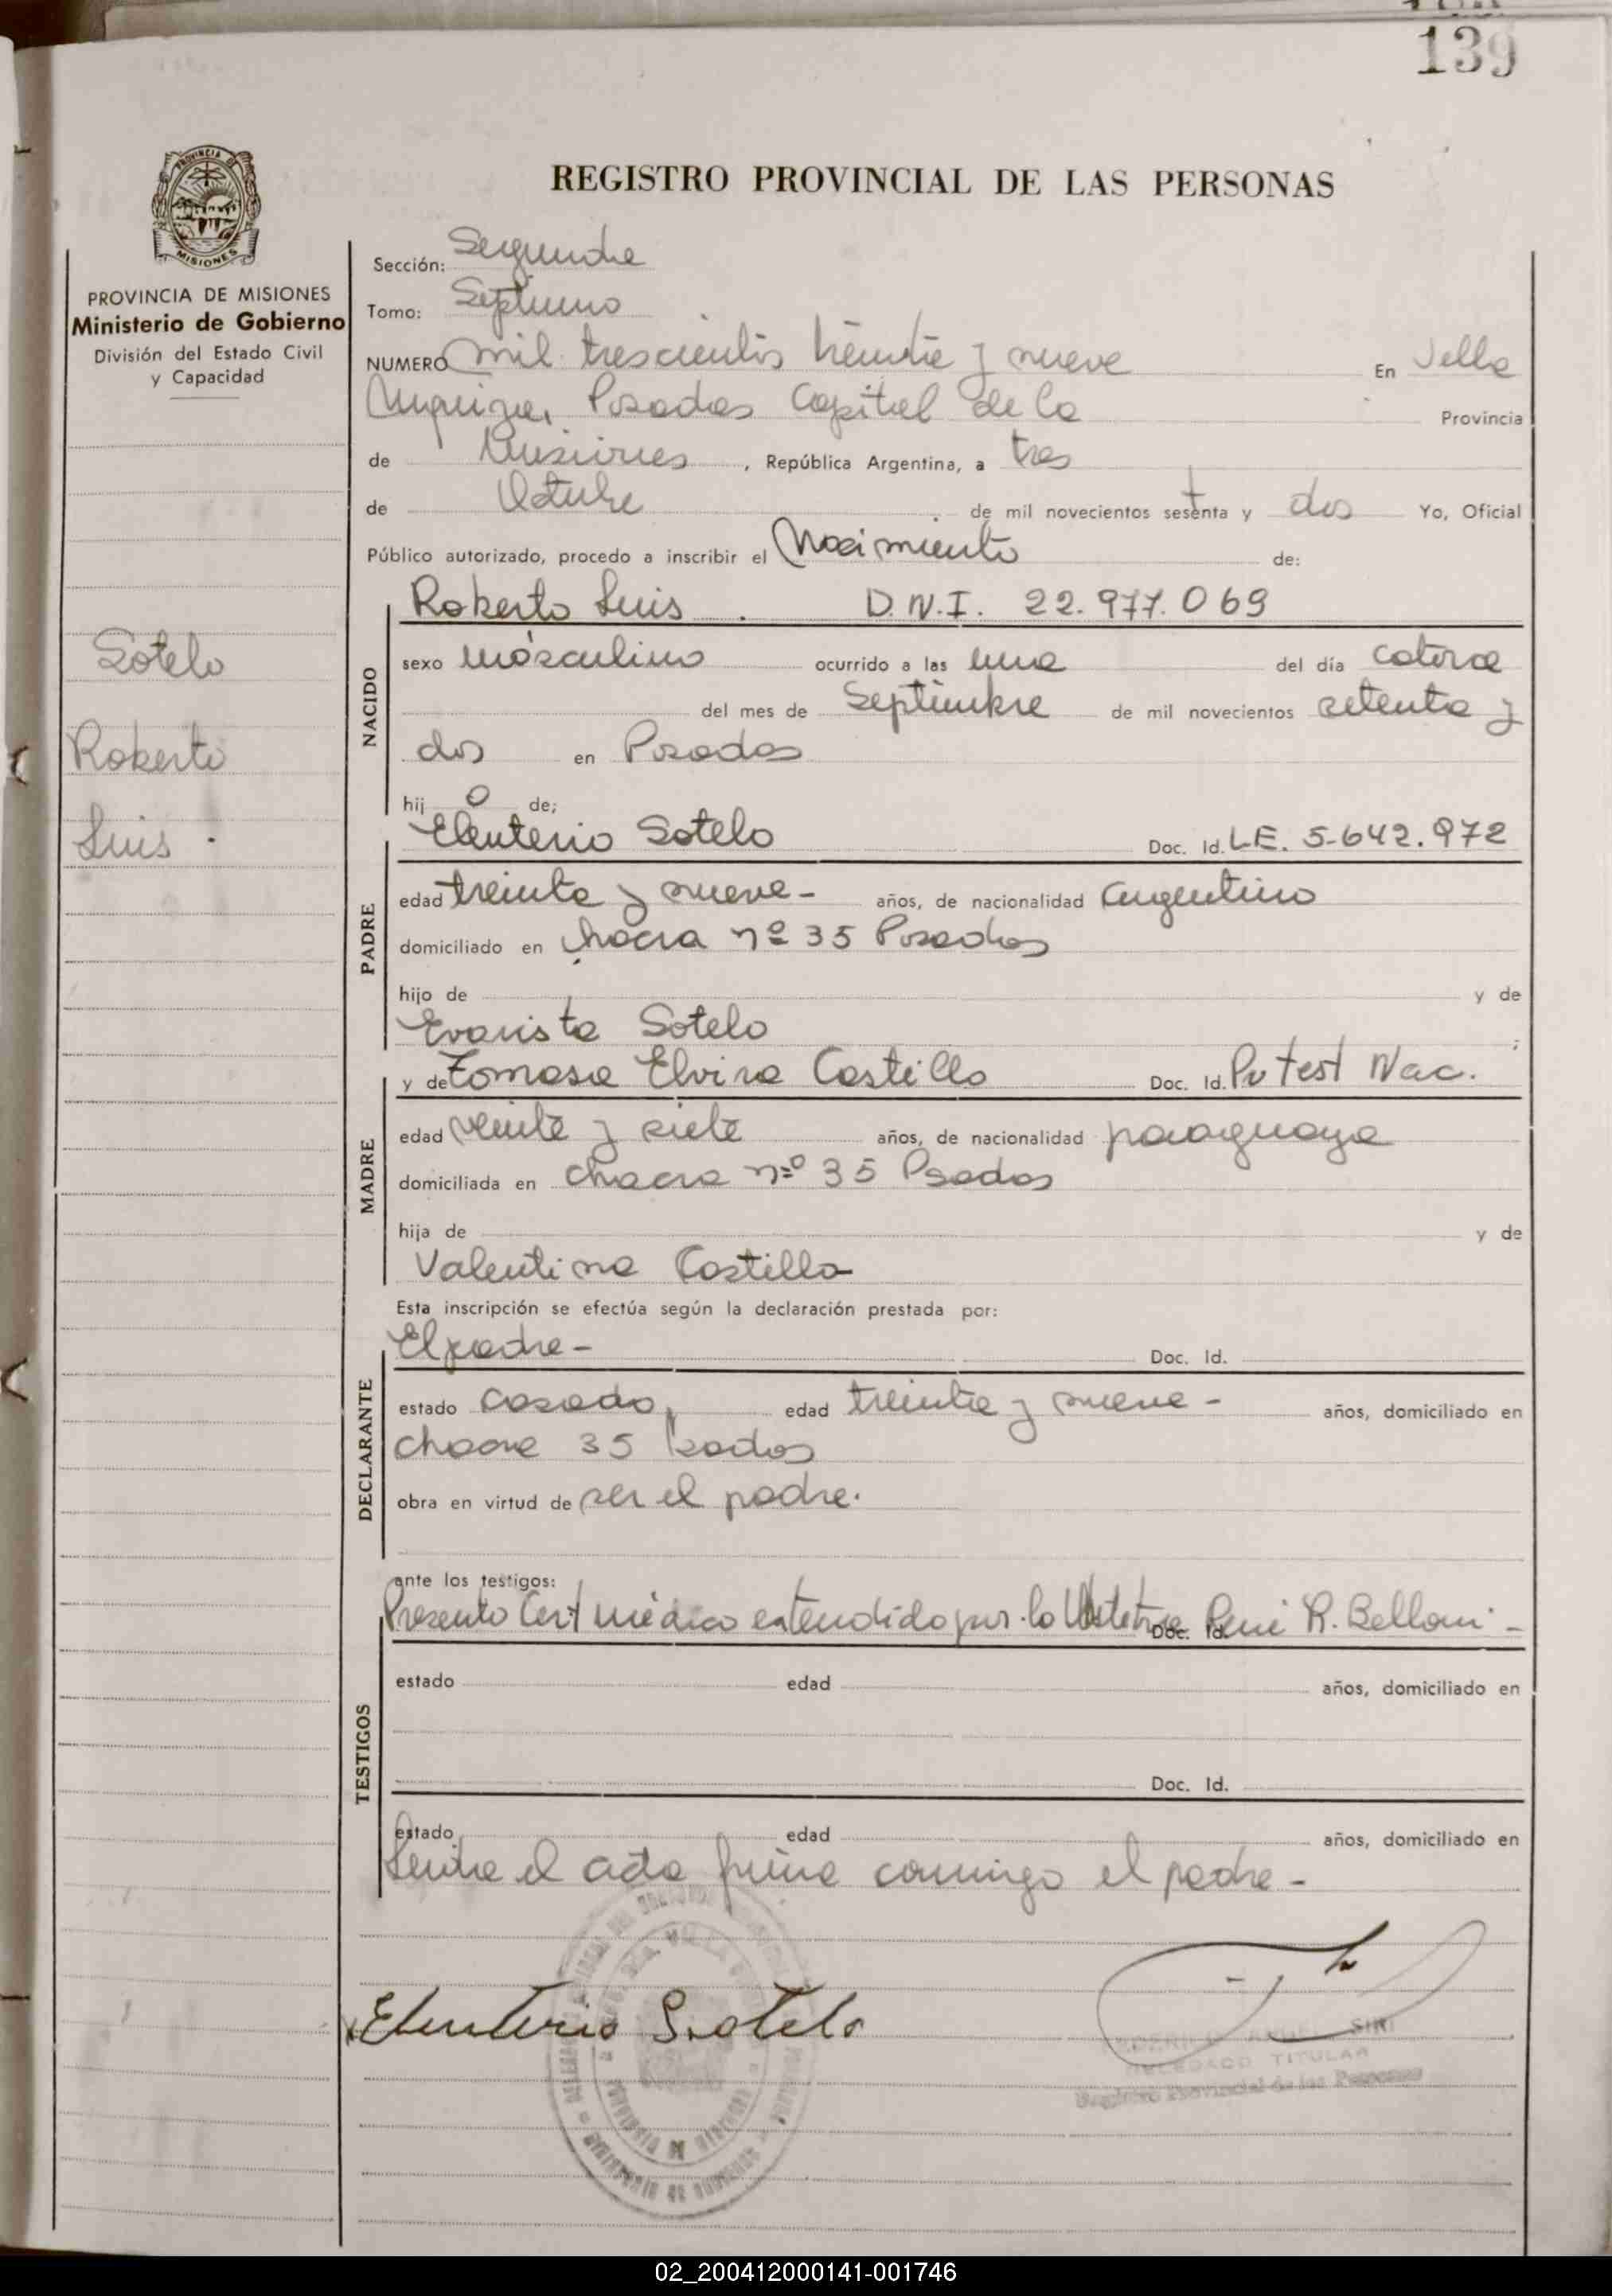 139
REGISTRO PROVINCIAL DE LAS PERSONAS
MISIONES
PROVINCIA DE MISIONES
Ministerio de Gobierno
División del Estado Civil
y Capacidad
Sotelo
Roberto
Luis.
Sección: Segunda
Tomo: Septimo
NUMERO mil trescientos treinta y nueve En Villa
Urquiza, Posadas Capital de la Provincia
de Misiones, República Argentina, a tres
de Octubre de mil novecientos setenta y dos Yo, Oficial
Público autorizado, procedo a inscribir el Nacimiento de:
NACIDO
Roberto Luis. D.N.I. 22.977.069
sexo masculino ocurrido a las una del día catorce
del mes de Septiembre de mil novecientos setenta y
dos en Posadas
hij o de;
PADRE
Eleuterio Sotelo Doc. Id. L.E. 5.642.972
edad treinta y nueve - años, de nacionalidad argentino
domiciliado en chacra nº 35 Posadas
hijo de y de
Evarista Sotelo ;
y de Tomasa Elvira Castillo Doc. Id. Pv test Nac.
MADRE
edad veinte y siete años, de nacionalidad paraguaya
domiciliada en chacra nº 35 Psadas
hija de y de
Valentina Castillo
Esta inscripción se efectúa según la declaración prestada por:
DECLARANTE
El padre - Doc. Id.
estado casado, edad treinta y nueve - años, domiciliado en
chacra 35 Posadas
obra en virtud de ser el padre.
ante los testigos:
TESTIGOS
Presento Cert médico extendido por la Obstetra Doc. Id. René R. Belloni -
estado edad años, domiciliado en
Doc. Id.
estado edad años, domiciliado en
Leida el acta firma conmigo el padre -
Eleuterio Sotelo
ANGEL SIRI
DELEGADO TITULAR
Registro Provincial de las Personas
02_200412000141-001746